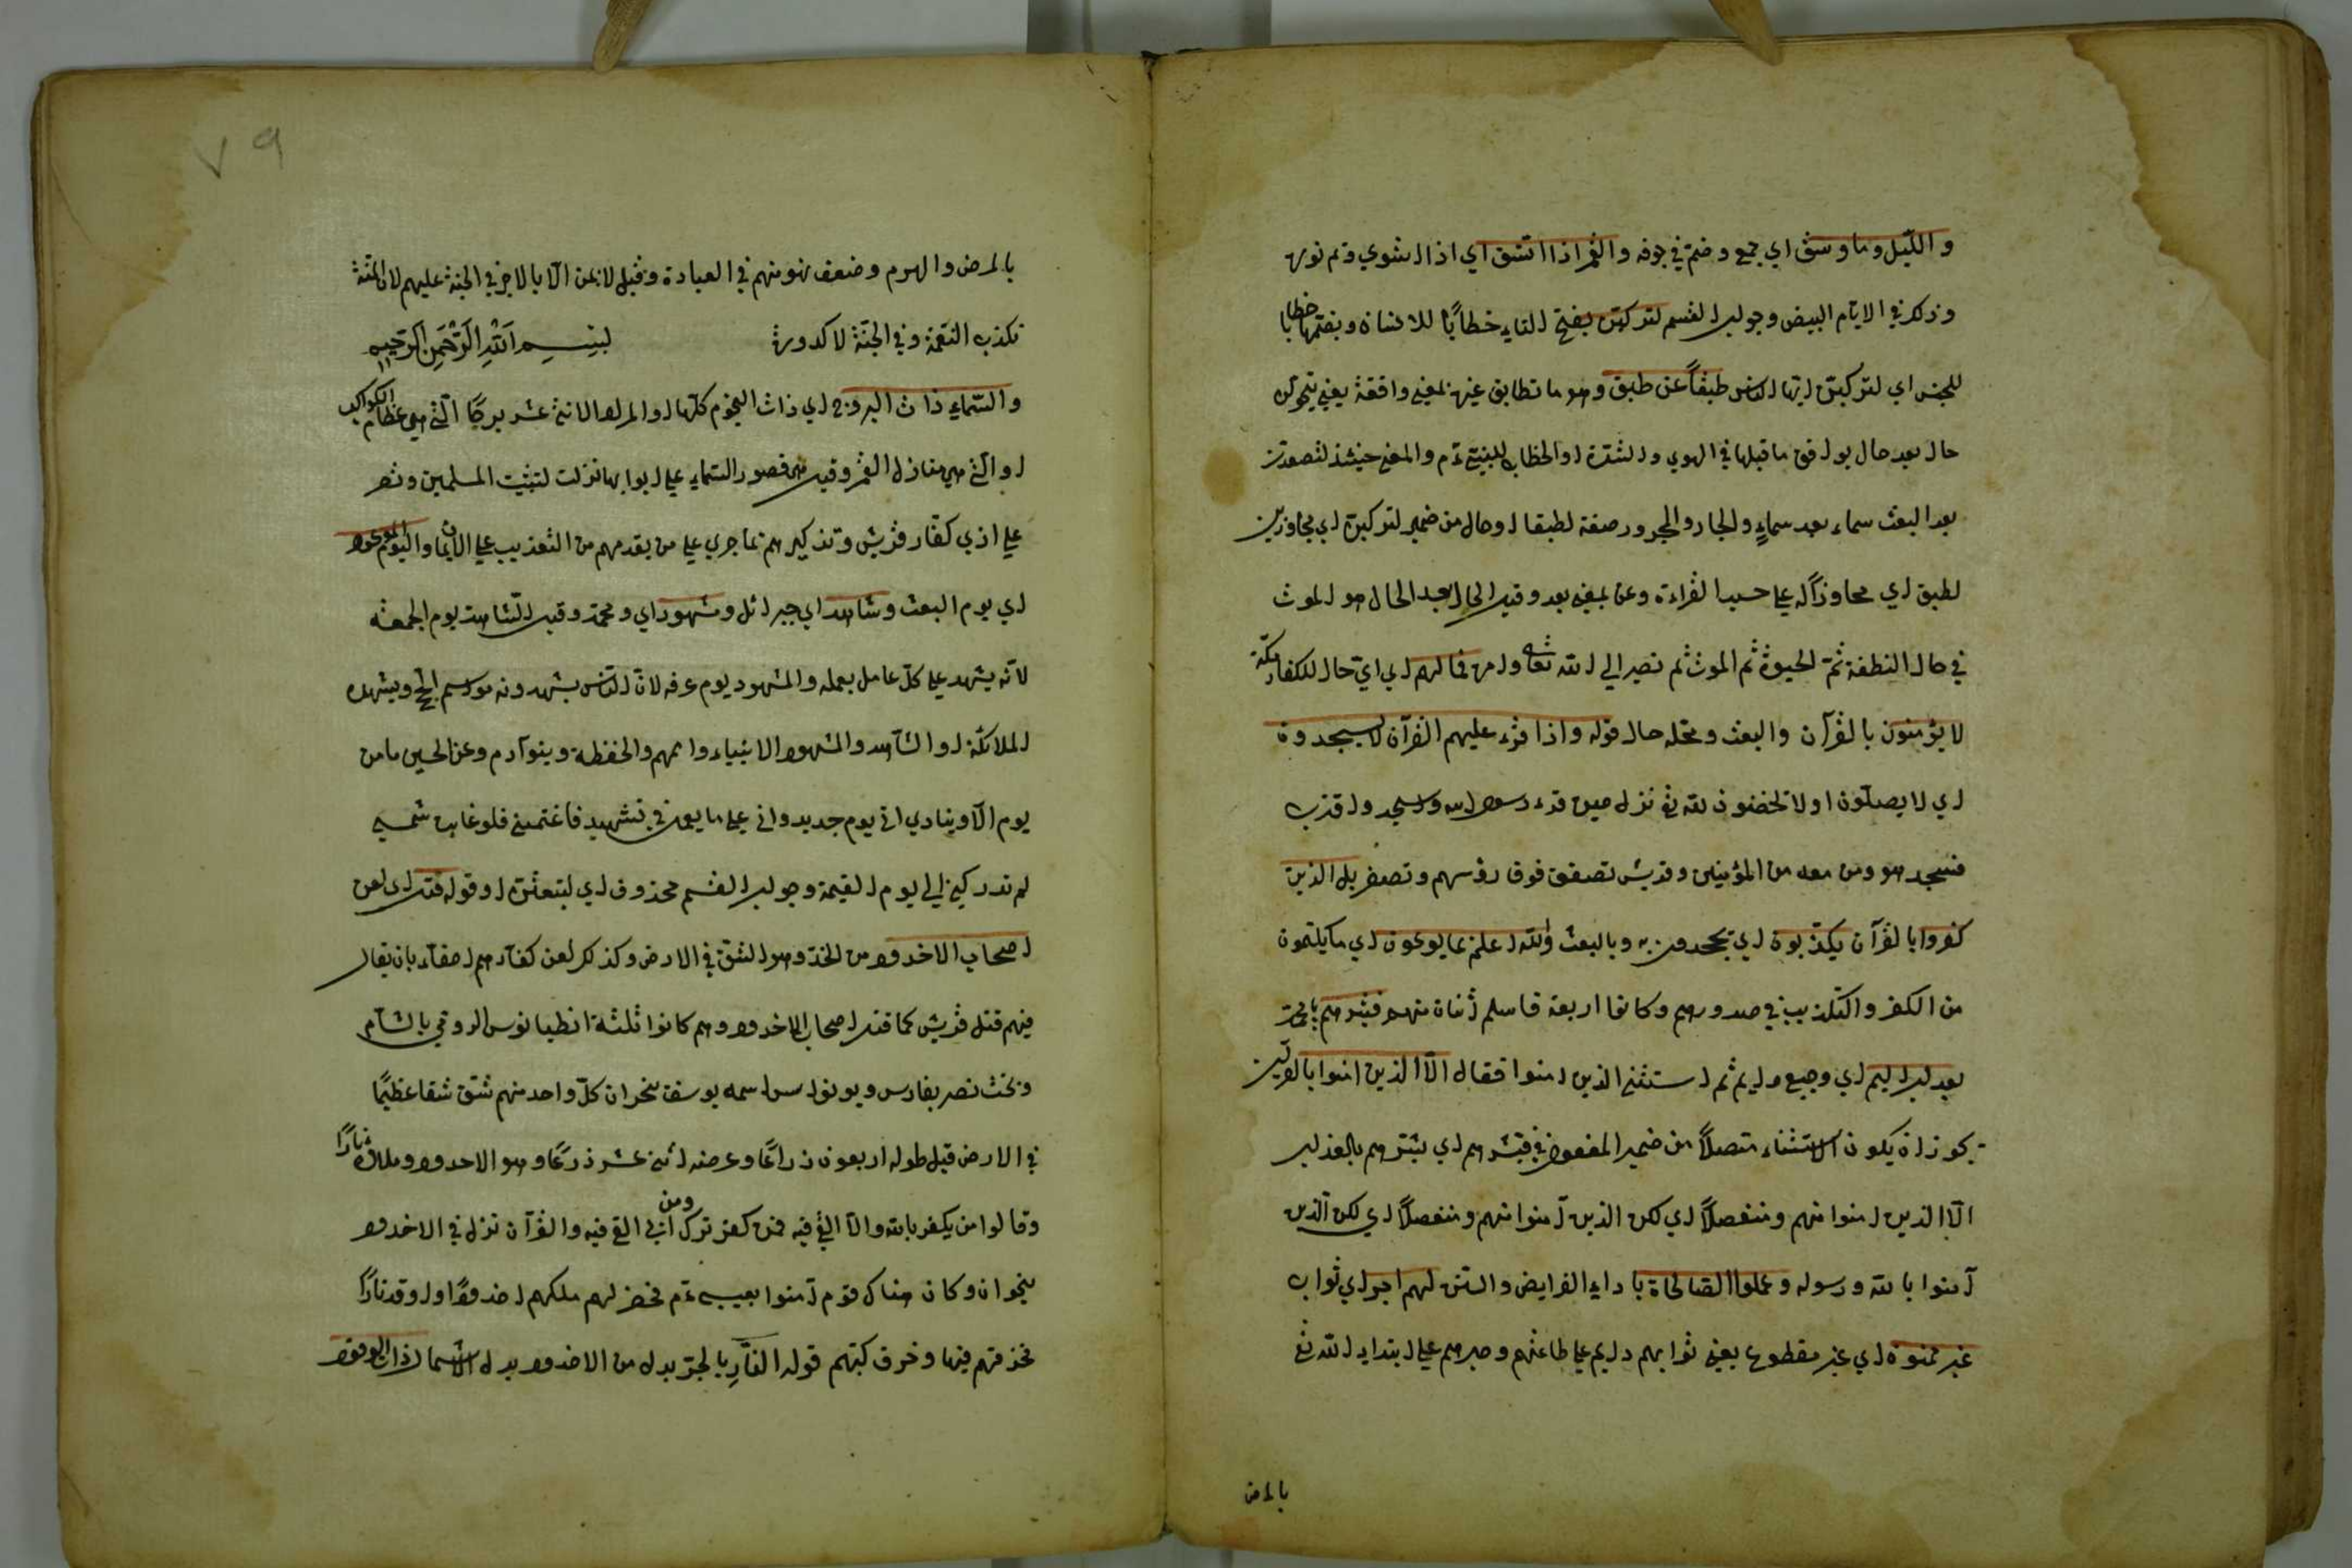 والليل وما وسق اي جمع وضم في جوفه والقمر اذا اتسق اي اذا استوي وتم نوره
وذلك في الايام البيض وجواب القسم لتركبن بفتح الباء خطابًا للانسان وبضمها خطابا
للجنس اي لتركبن ايها الناس طبقاً عن طبق وهو ما تطابق غيره بمعني وافقه يعني تتحولن
حالا بعد حال يوافق ما قبلها في الهوي والشدة او الخطاب للنبي عم والمعني حينئذ لتصعدن
بعد البعث سماء بعد سماءٍ والجار والمجرور صفة لطبقا او حال من ضمير لتركبن اي مجاوزين
لطبق اي مجاوزًا له علي حسب القراءة وعن بمعني بعد وقيل الحال بعد الحال هو الموت
في حال النطفة ثمّ الحيوة ثم الموت ثم تصير الي الله تعالي فما لهم اي ايّ حال للكفار مكة
لا يؤمنون بالقرآن والبعث ومحله حال قوله واذا قرء عليهم القرآن لا يسجدون
اي لا يصلون او لا يخضعون لله تع نزل حين قرء رسول الله واسجد واقترب
فسجد هو ومن معه من المؤمنين وقريش تصفق فوق رؤسهم وتصفر بل الذين
كفروا بالقرآن يكذبون اي يجحدون به وبالبعث والله اعلم بما يوعون اي ما يكتمون
من الكفر والتكذيب في صدورهم وكانوا اربعة فاسلم اثنان منهم فبشرهم يا محمد
بعذاب اليم اي وجيع دايم ثم استثني الذين امنوا فقال الا الذين امنوا بالقرآن
يجوز ان يكون الاستثناء متصلاً من ضمير المفعول في فبشرهم اي بشرهم بالعذاب
الا الذين امنوا منهم ومنفصلاً اي لكن الذين آمنوا منهم ومنفصلاً اي لكن الذين
آمنوا بالله ورسوله وعملوا الصالحات باداء الفرايض والسنن لهم اجر اي ثواب
غير ممنون اي غير مقطوع يعني ثوابهم دايم علي طاعتهم وصبرهم علي ابتداء الله تع
بالمرض
٧٩
بالمرض والهرم وضعف قوتهم في العبادة وقيل لا يمن الا بالاجر في الجنة عليهم لان المنّة
تكذب النعمة وفي الجنّة لا كدورة بسم الله الرحمن الرحيم
والسماء ذات البروج اي ذات النجوم كلها او المراد الاثني عشر برجًا التي هي عظام الكواكب
او التي هي منازل القمر وقيل هي قصور السماء علي ابوابها نزلت لتثبيت المسلمين وثم
علي اذي كفار قريش وتذكيرهم بما جري علي من تقدمهم من التعذيب علي الايمان واليوم الموعود
اي يوم البعث وشاهد اي جبرائل ومشهود اي ومحمد وقيل الشاهد يوم الجمعه
لانه يشهد علي كلّ عامل بعمله والمشهود يوم عرفه لانّ الناس يشهدونه موسم الحج ويشهده
الملائكة او الشاهد والمشهود الانبياء واممهم والحفظة وبنو آدم وعن الحسين ما من
يوم الا وينادي اني يوم جديد واني علي ما يعمل في شهيد فاغتمني فلو غابت شمسي
لم تدركني الي يوم القيمة وجواب القسم محذوف اي لتبعثن او قوله قتل اي لعن
اصحاب الاخدود من الخدّ وهو الشق في الارض وكذلك لعن كفار هم احقاء بان يقال
فيهم قتل قريش كما قتل اصحاب الاخدود وهم كانوا ثلثة انطيانوس الرومي بالشام
وبخت نصر بفارس ويونواس اسمه يوسف بنجران كلّ واحد منهم شق شقا عظيمًا
في الارض قيل طوله اربعون ذراعًا وعرضه اثني عشر ذراعًا وهو الاخدود وملاؤه نارًا
وقالوا من يكفر بالله والا القي فيه فمن كفر ترك ومن ابي القي فيه والقرآن نزل في الاخدود
بنجران وكان هناك قوم آمنوا بعيسي عم فحفر لهم ملكهم اخدودًا واوقد نارًا
فحذفهم فيها وخرق كتبهم قوله النّارِ بالجرّ بدل من الاخدود بدل الاشتمال ذات الوقود